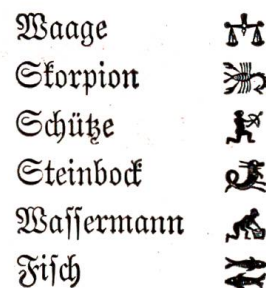 Waage
Skorpion
Schütze
Steinbock
Wassermann
Fisch